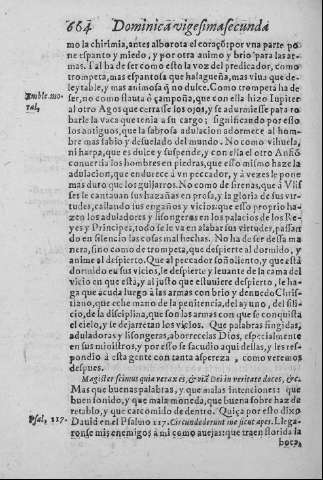 664 Dominica vigesimasecunda
mo la chirimia, antes alborota el coraçõ: por vna parte po
ne espanto y miedo, y por otra animo y brio para las ar-
mas. Tal ha de ser como esto la voz del predicador, como
trompeta, mas espantosa que halagueña, mas viua que de-
leytable, y mas animosa q̃ no dulce. Como trompeta ha de
Emble. mo-
ral,
ser, no como flauta ò çampoña, que con ella hizo Iupiter
al otro Agos que cerrasse los ojos, y se adurmiesse para ro
barle la vaca que tenia a su cargo; significando por esso
los antiguos, que la sabrosa adulacion adormece al hom-
bre mas sabio y desuelado del mundo. No como vihuela,
ni harpa, que es dulce y suspende, y con ella el otro Anfiõ
conuertia los hombres en piedras, que esso mismo haze la
adulacion, que endurece à vn peccador, y à vezes le pone
mas duro que los guijarros. No como de sirenas, que à Vlis
ses le cantauan sus hazañas en prosa, y la gloria de sus vir-
tudes, callando sus engaños y vicios: que esso proprio ha-
zen los aduladores y lisongeros en los palacios de los Re-
yes y Principes, todo se le va en alabar sus virtudes, passan
do en silencio las cosas mal hechas. No ha de ser dessa ma
nera, sino como de trompeta, que despierte al dormido, y
anime al despierto. Que al peccador soñoliento, y que està
dormido en sus vicios, le despierte y leuante de la cama del
vicio en que està, y al justo que estuuiere despierto, le ha-
ga que acuda luego à las armas con brio y denuedo Chris-
tiano, que eche mano de la penitencia, del ayuno, del sili-
cio, de la disciplina, que son las armas con que se conquista
el cielo, y se dejarretan los vicios. Que palabras fingidas,
aduladoras y lisongeras, aborrecelas Dios, especialmente
en sus ministros, y por esso se sacudio aqui dellas, y les res-
pondio à esta gente con tanta aspereza, como veremos
despues.
Magister scimus quia verax es, & viã Dei in veritate doces, &c.
Mas que buenas palabras, y que malas intenciones: que
buen sonido, y que mala moneda, que buena sobre haz de
retablo, y que carcomido de dentro. Quiça por esto dixo
Psal, 117.
Dauid en el Psalmo 117. Circundederunt me sicut apes. Llega-
ronse mis enemigos à mi como auejas: que traen florida la
boca,